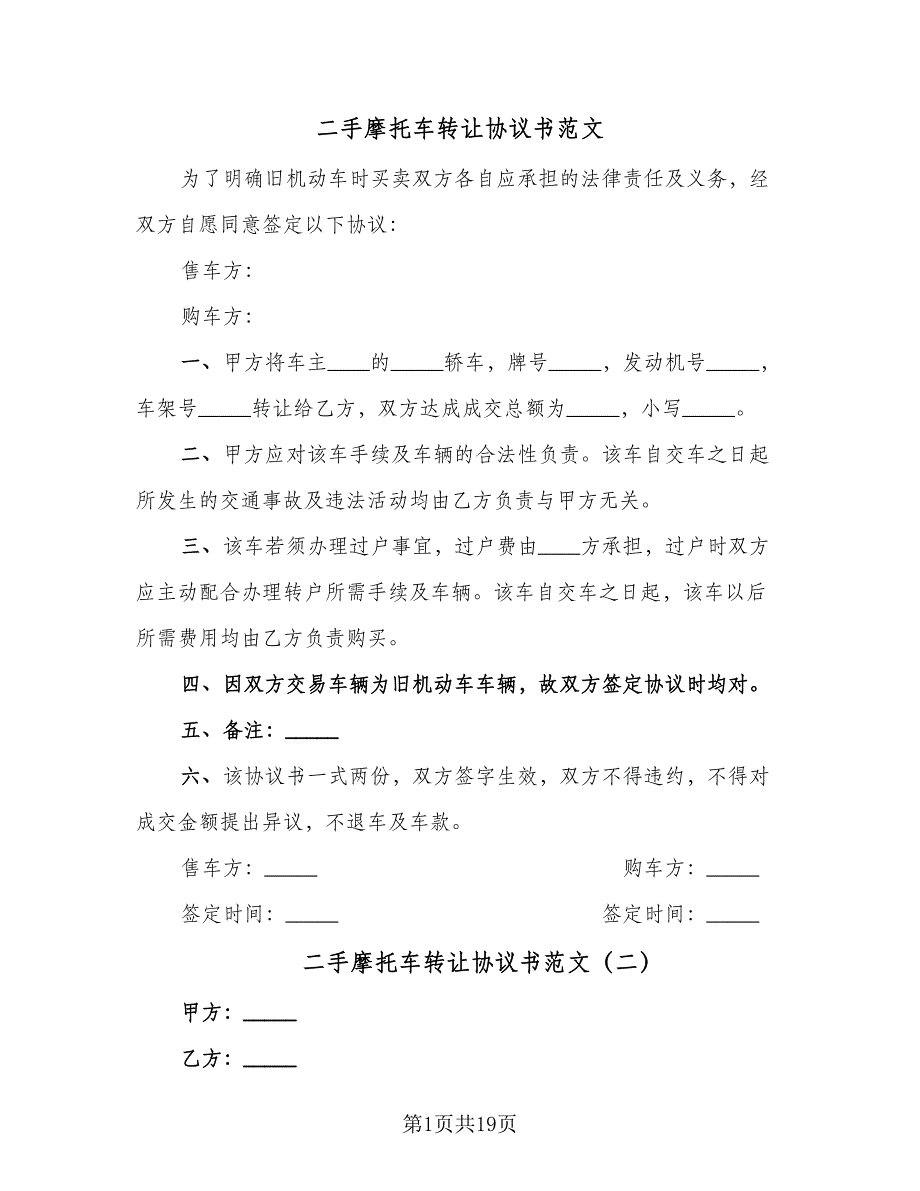 二手摩托车转让协议书范文
为了明确旧机动车时买卖双方各自应承担的法律责任及义务，经
双方自愿同意签定以下协议：
售车方：
购车方：
一、甲方将车主____的_____轿车，牌号_____，发动机号_____，
车架号_____转让给乙方，双方达成成交总额为_____，小写_____。
二、甲方应对该车手续及车辆的合法性负责。该车自交车之日起
所发生的交通事故及违法活动均由乙方负责与甲方无关。
三、该车若须办理过户事宜，过户费由____方承担，过户时双方
应主动配合办理转户所需手续及车辆。该车自交车之日起，该车以后
所需费用均由乙方负责购买。
四、因双方交易车辆为旧机动车车辆，故双方签定协议时均对。
五、备注：_____
六、该协议书一式两份，双方签字生效，双方不得违约，不得对
成交金额提出异议，不退车及车款。
售车方：_____ 购车方：_____
签定时间：_____ 签定时间：_____
二手摩托车转让协议书范文（二）
甲方：_____
乙方：_____
第1页共19页